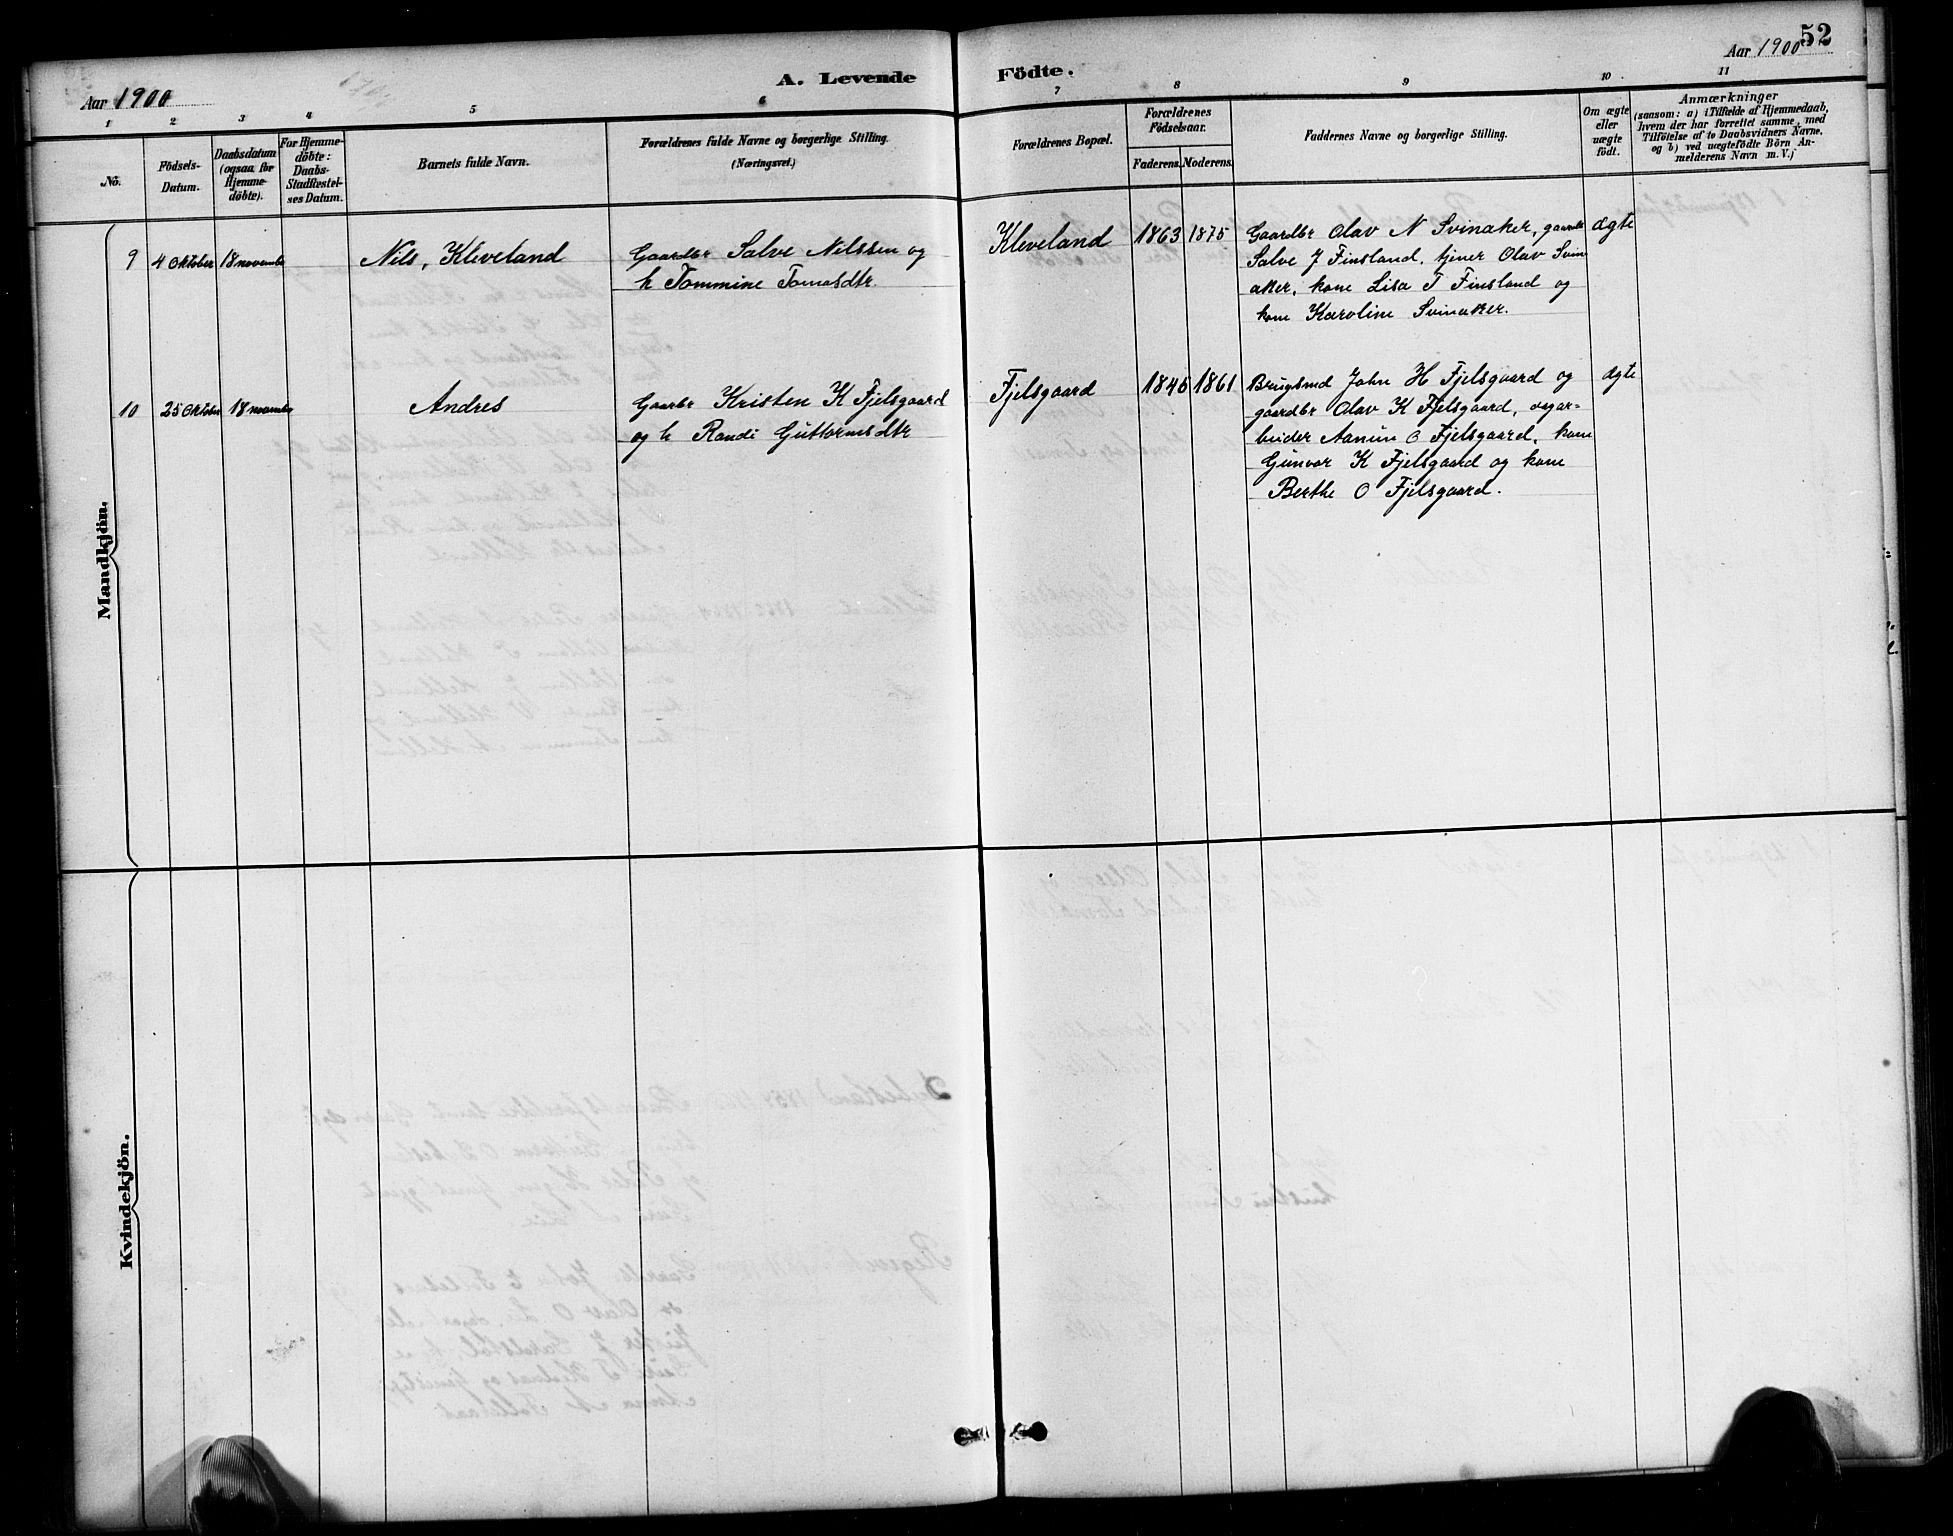 52
Aar 1900
A. Levende Födte.
Aar 1900
1 2 3 4 5 6 7 8 9 10 11
No.
Födsels-
Datum.
Daabsdatum
(ogsaa for
Hjemme-
döbte).
For Hjemme-
döbte:
Daabs-
Stadfæstel-
ses Datum.
Barnets fulde Navn.
Forældrenes fulde Navne og borgerlige Stilling.
(Næringsvei.)
Forældrenes Bopæl.
Forældrenes
Födselsaar.
Faderens. Moderens.
Faddernes Navne og borgerlige Stilling.
Om ægte
eller
uægte
födt.
Anmærkninger
(saasom: a) i Tilfælde af Hjemmedaab,
hvem der har forrettet samme, med
Tilföielse af to Daabsvidners Navne,
og b) ved uægtefödte Börn An-
melderens Navn m. V.)
Mandkjön.
9 4 Oktober 18 novembr Nils, Kleveland
Gaardbr Salve Nilssen og
h Tommine Tomasdtr.
Kleveland 1863 1875
Gaardbr Olav N Svinaker, gaardb
Salve J Finsland, tjener Olav Svin
aker, kone Lisa T Finsland og
kone Karoline Svinaker.
ægte
10 25 Oktober 18 novembr Andres
Gaarbr Kristen K Fjelsgaard
og h Randi Guttormsdtr
Fjelsgaard 1845 1861
Brugsmd John H Fjelsgaard og
gaardbr Olav K Fjelsgaard, dagar-
beider Aanun O Fjelsgaard, kone
Gunvor K Fjelsgaard og kone
Berthe O Fjelsgaard.
ægte
Kvindekjön.